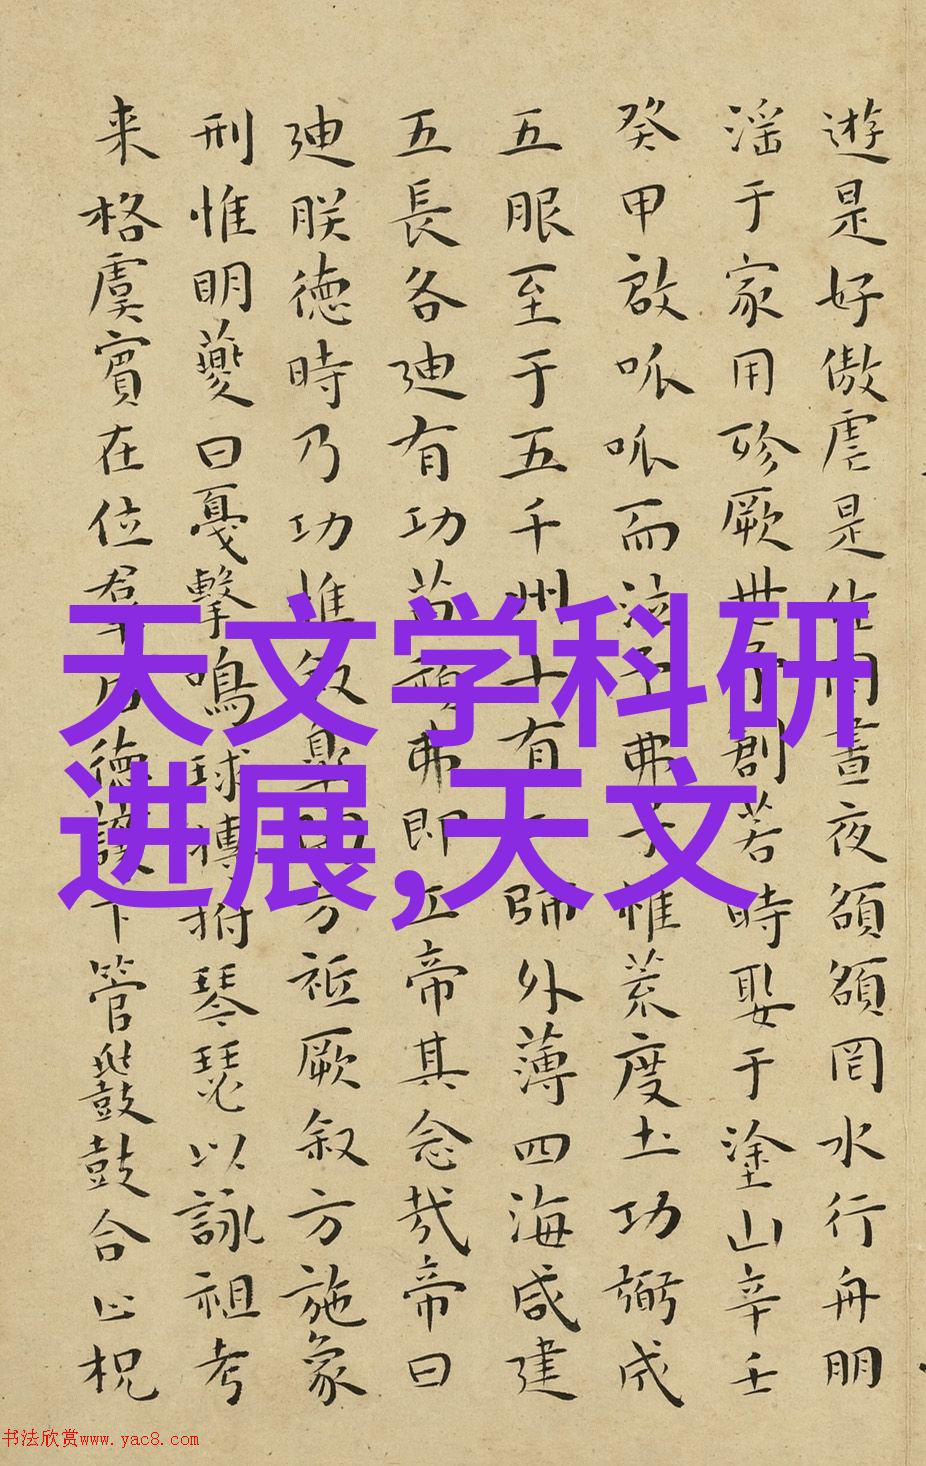 遊是好傲虐是作罔晝夜頟頟罔水行舟朋
滛于家用殄厥世予創若時娶于塗山辛壬
癸甲啟呱呱而泣予弗子惟荒度土功弼成
五服至于五千州十有二師外薄四海咸建
五長各迪有功苗頑弗即工帝其念哉帝曰
迪朕徳時乃功惟叙皐陶方祗厥叙方施象
刑惟明夔曰戞擊鳴球搏拊琴瑟以詠祖考
来格虞賓在位羣后徳讓下管鼗鼓合止柷
天文学科研
进展,天文
书法欣赏www.yac8.com